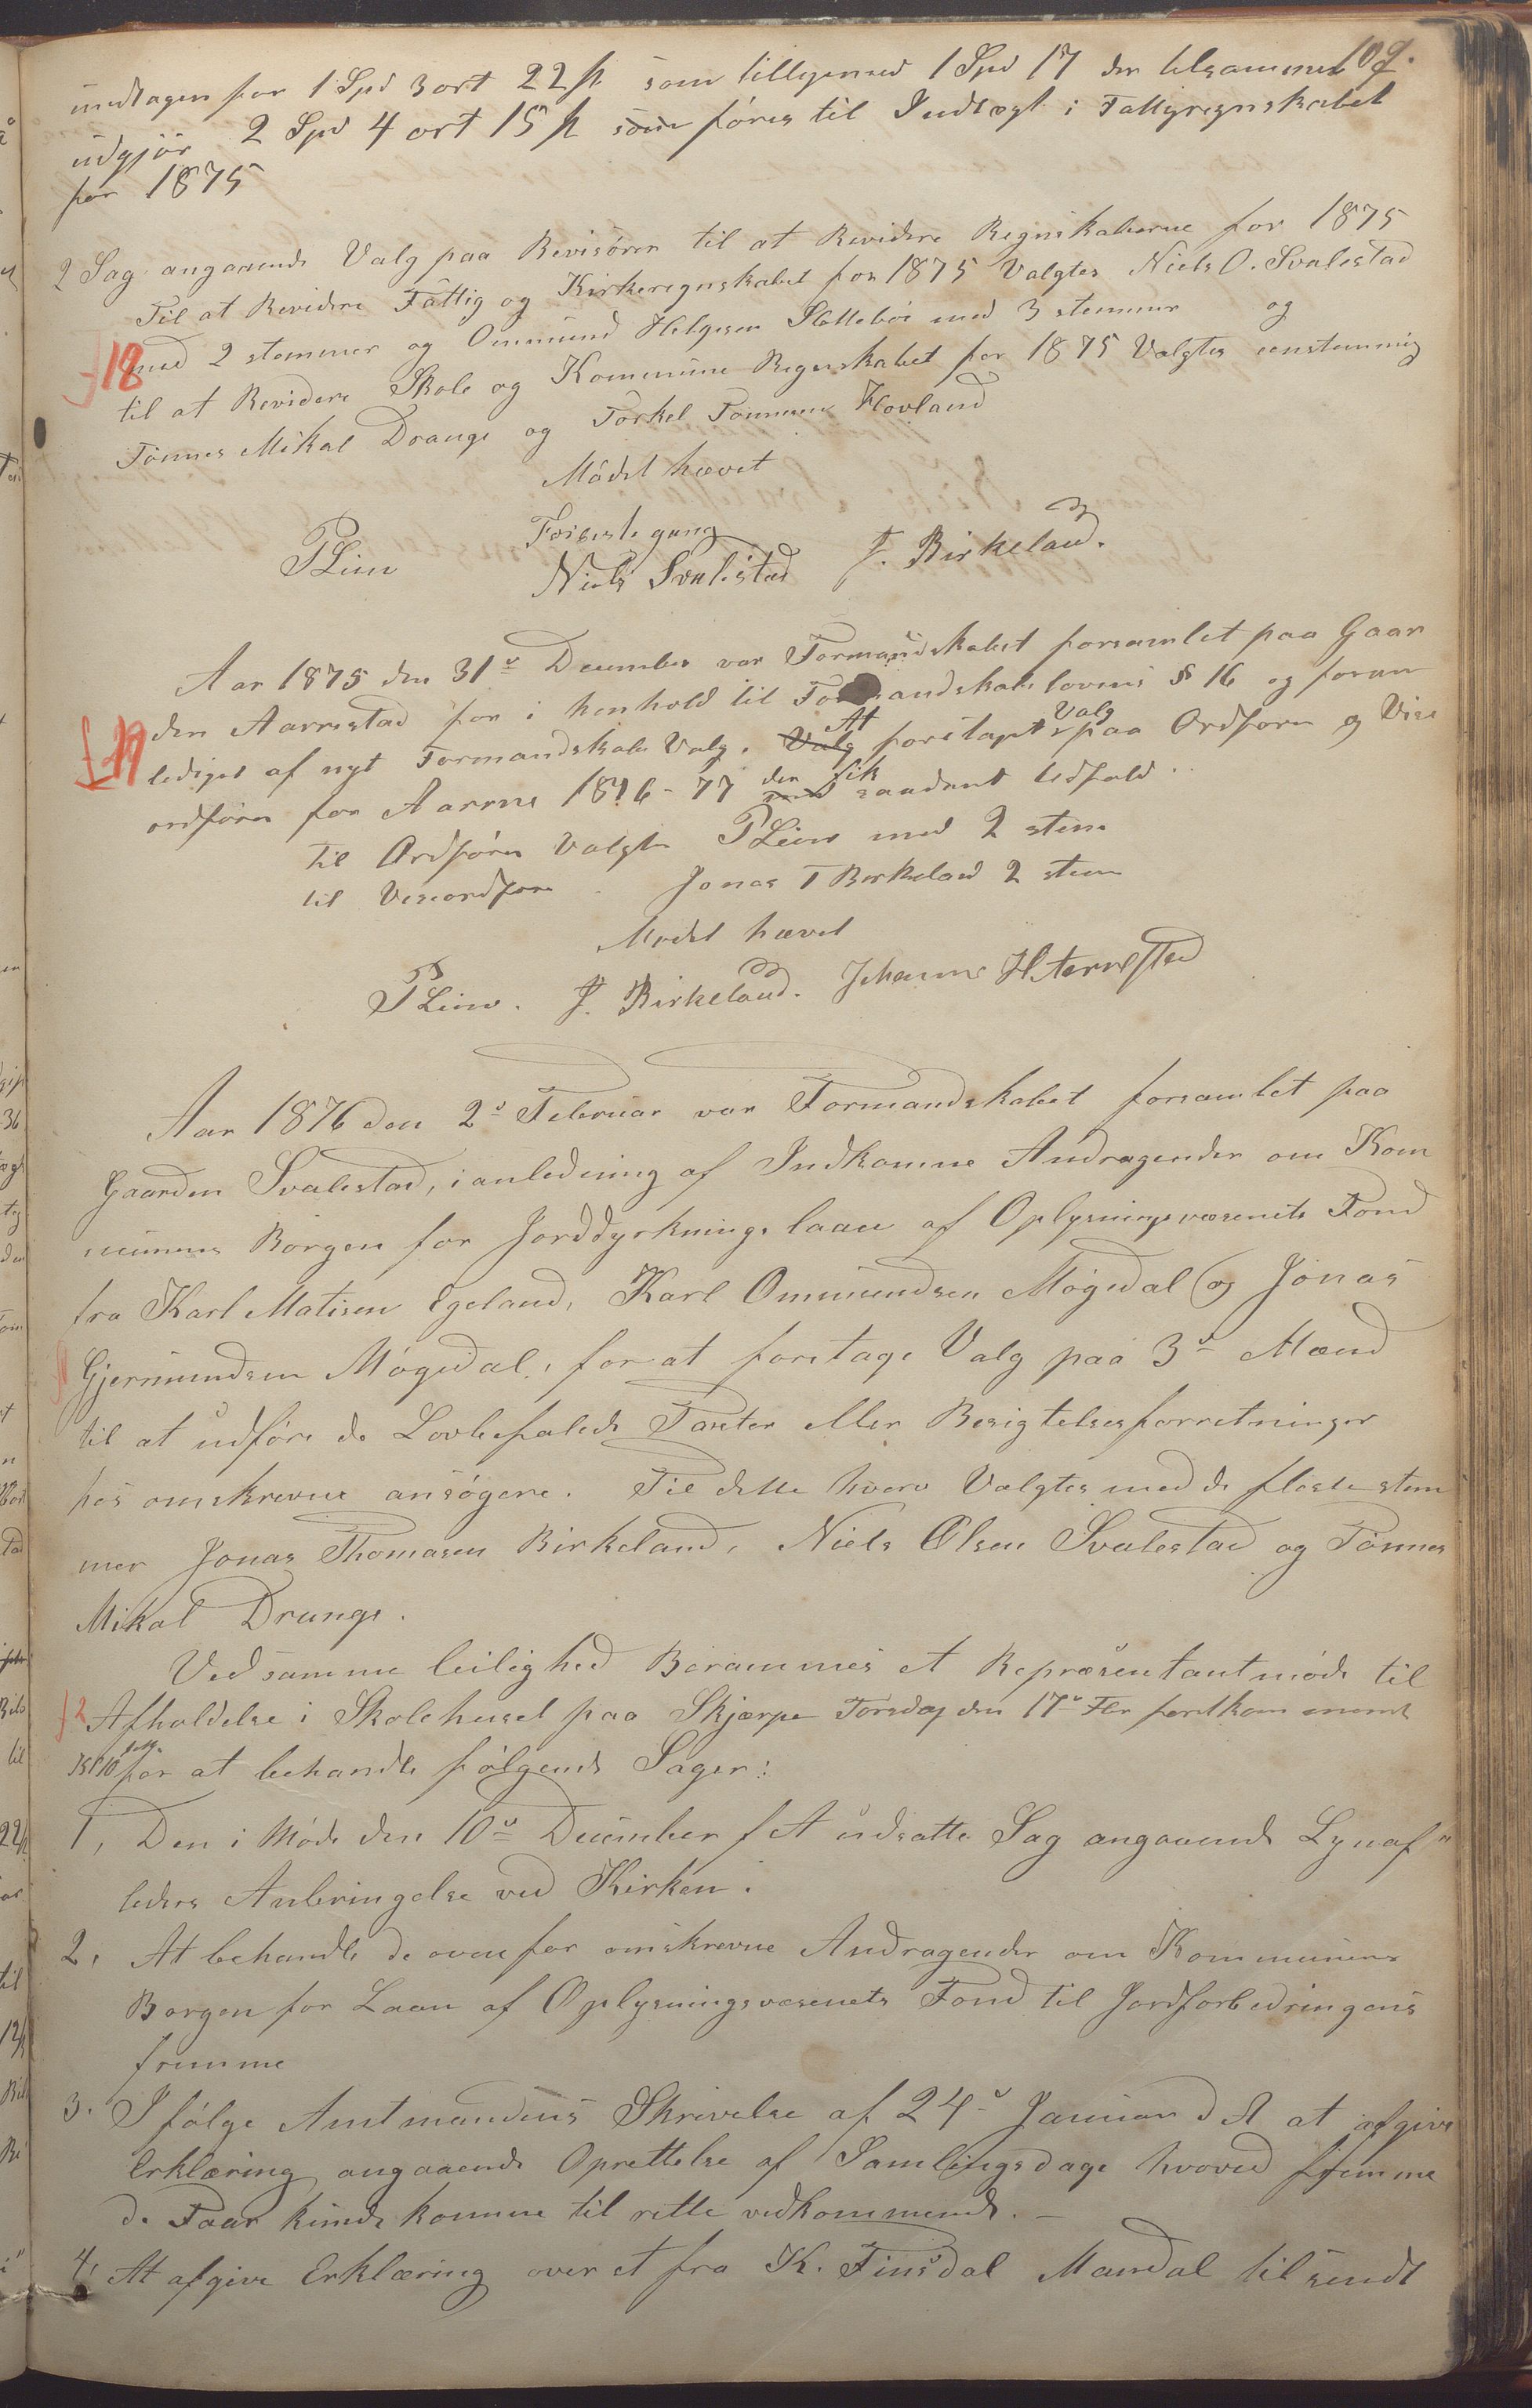 109.
undtagen for 1 Spd 3 ort 22 ß som tillegemed 1 Spd 17 der tilsammen
udgjör 2 Spd 4 ort 15 ß som föres til Indtægt i Fattigregnskabet
for 1875
2 Sag angaaende Valg paa Revisörer til at Revidere Regnskaberne for 1875
Til at Revidere Fattig og Kirkeregnskabet for 1875 Valgtes Niels O. Svalestad
18 med 2 stemmer og Ommund Helgesen Sletteböe med 3 stemmer og
til at Revidere Skole og Kommune Regnskabet for 1875 Valgtes eenstemmig
Tönnes Mikal Drange og Torkel Tönnesen Hovland
Mödet hævet
PLien Niels Svalestad J. Birkeland.
Aar 1875 den 31te December var Formandskabet forsamlet paa Gaar
den Aarrestad for i henhold til Formandskabslovens § 16 og foran
lediget af nyt Formandskabs Valg. Valg At foretages Valg paa Ordförer og Vice
ordförer for Aarene 1876-77 med den fik saadant Udfald.
Til Ordförer Valgtes PLien med 2 stem
til Viceordförer Jonas T Birkeland 2 stem
Mödet hævet
PLien. J. Birkeland. Johannes H Aarrestad
Aar 1876 den 2den Februar var Formandskabet forsamlet paa
Gaarden Svalestad, i anledning af Indkomne Andragender om Kom
munens Borgen for Jorddyrkningslaan af Oplysningsvæsenets Fond
fra Karl Matisen Egeland, Karl Ommundsen Mögedal og Jonas
Gjermundsen Mögedal, for at foretage Valg paa 3de Mænd
til at udföre de Lovbefalede Taxter eller Besigtelsesforretninger
hos omskrevne ansögere. Til dette hverv Valgtes med de fleste stem
mer Jonas Thomasen Birkeland, Niels Olsen Svalestad og Tönnes
Mikal Drange.
Ved samme leilighed Berammes et Repræsentantmöde til
12 Afholdelse i Skolehuset paa Skjærpe Torsdag den 17de Fbr förstkommende
Kl 10 form. for at behandle fölgende Sager:
1, Den i Möde den 10de December f A udsatte Sag angaaende Lynaf"
leders Anbringelse ved Kirken.
2, At behandle de ovenfor omskrevne Andragender om Kommunens
Borgen for Laan af Oplysningsvæsenets Fond til Jordforbedringens
fremme
3. Ifölge Amtmandens Skrivelse af 24de Januar d A at afgive
Erklæring angaaende Oprettelse af Samlingsdage hvorved fremme
de Faar kunde komme til rette vedkommende. —
4, At afgive Erklæring over et fra K. Finsdal Mandal tilsendt